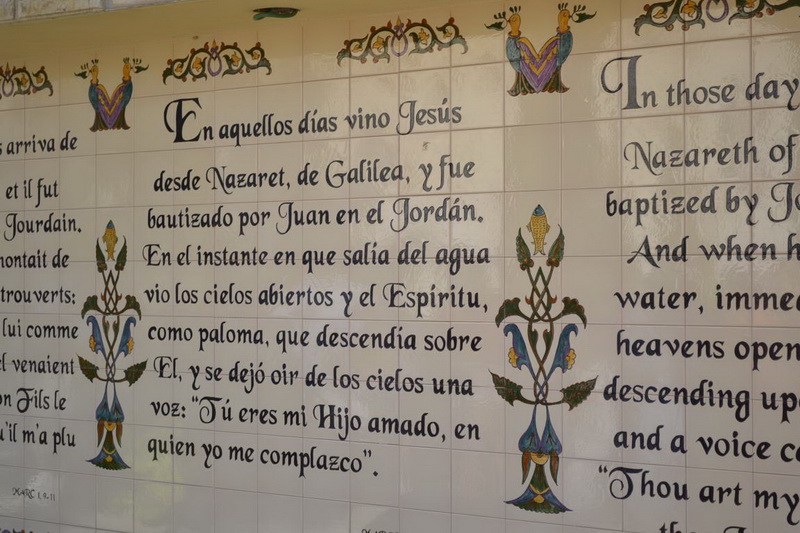 s arriva de
et il fut
Jourdain.
montait de
trouverts:
lui comme
el venaient
on Fils le
u'il m'a plu
MARC 1.9-11
En aquellos días vino Jesús
desde Nazaret, de Galilea, y fue
bautizado por Juan en el Jordán.
En el instante en que salía del agua
vio los cielos abiertos y el Espíritu,
como paloma, que descendía sobre
El, y se dejó oir de los cielos una
voz: “Tú eres mi Hijo amado, en
quien yo me complazco”.
In those day
Nazareth of
baptized by Jo
And when h
water, immed
heavens open
descending upo
and a voice c
“Thou art my